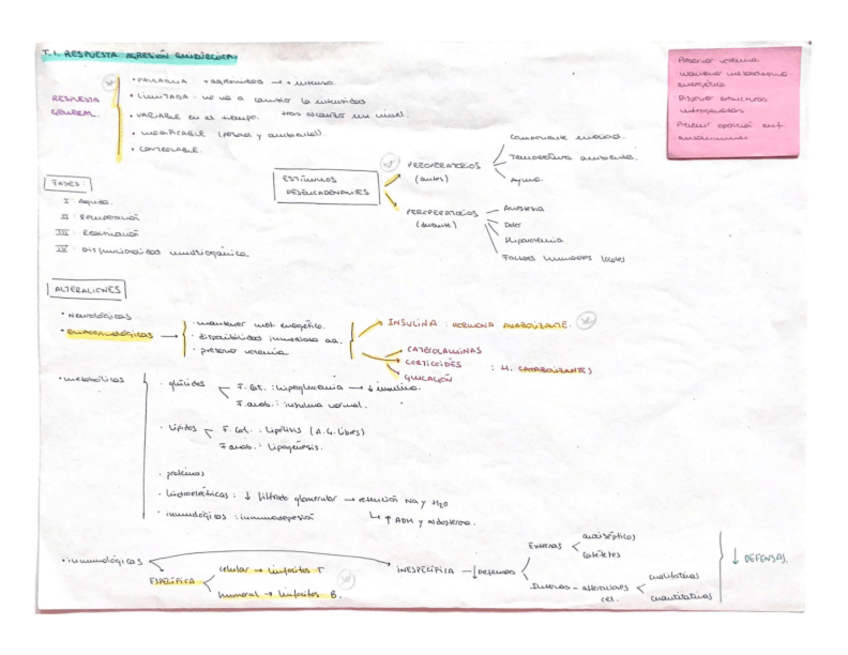 T.1. RESPUESTA AGRESIÓN QUIRÚRGICA
RESPUESTA GENERAL
• PARALELA + agresividad → + intensa.
• LIMITADA: no va a cambiar la intensidad tras alcanzar un nivel.
• VARIABLE en el tiempo.
• modificable (personal y ambiental).
• CONTROLABLE.
Preservar volemia
Mantener metabolismo energético
Disponer estructuras
Prevenir
FASES:
I: Aguda.
II: Recuperación
III: Reanimación
IV: Disfuncionalidad multiorgánica.
ESTÍMULOS DESENCADENANTES
PREOPERATORIOS (antes)
Componente emocional.
Temperatura ambiental.
Ayuno.
PEROPERATORIOS (durante)
Anestesia
Dolor
Hipovolemia
Factores humorales locales
ALTERACIONES
• Neurológicas
• ENDOCRINOLÓGICAS →
· mantener met. energético.
· disponibilidad inmediata aa.
· preservar volemia
INSULINA: HORMONA ANABOLIZANTE.
CATECOLAMINAS
CORTICOIDES : H. CATABOLIZANTES
GLUCAGÓN
• metabólicas
· glúcidos
F. Cat.: hiperglucemia → ↓ insulina.
F. anab.: insulina normal.
· Lípidos
F. Cat.: Lipólisis (A.G. libres)
F. anab.: Lipogénesis.
· proteínas
· hidroeléctricas: ↓ filtrado glomerular → retención Na y H2O
↳ ↑ ADH y aldosterona.
· inmunológicas: inmunodepresión
• inmunológicas
ESPECÍFICA
celular → linfocitos T
humoral → linfocitos B.
INESPECÍFICA → ↓ Defensas
Externas
antisépticos
catéteres
Internas - alteraciones cel.
cualitativas
cuantitativas
↓ DEFENSAS.